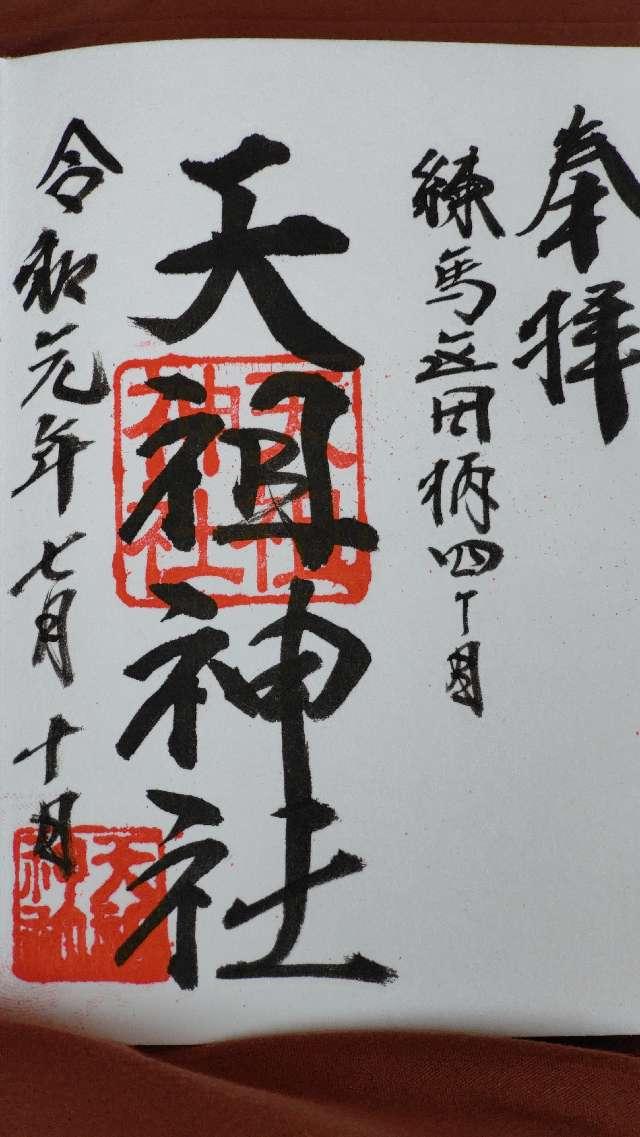 奉拝
練馬区田柄四丁目
天祖神社
天祖
神社
令和元年七月十日
天祖
神社